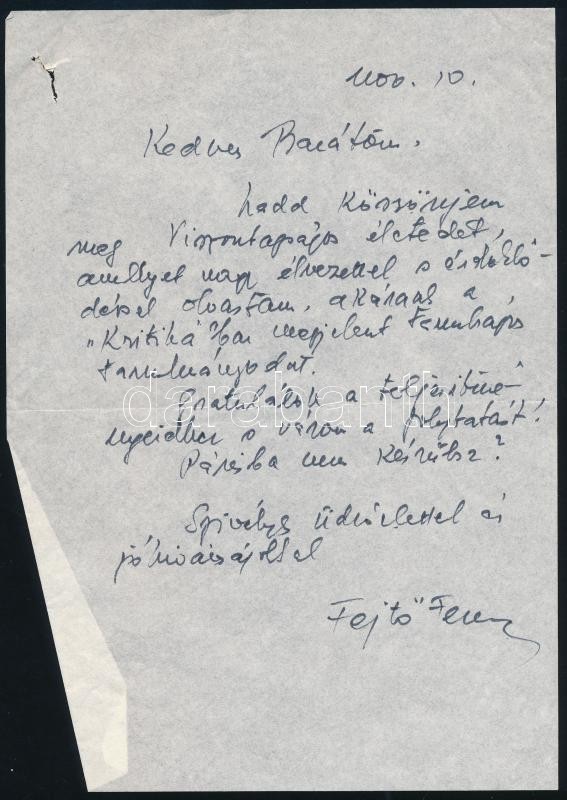 Nov. 10.
Kedves Barátom,
hadd köszönjem
meg Viszontagságos életedet,
amellyet nagy élvezettel s érdeklő-
déssel olvastam, akárcsak a
"Kritiká"ban megjelent
tanulmányodat.
Gratulálok a teljesítmé-
nyeidhez s várom a folytatást!
Párisba nem készülsz?
Szivélyes üdvözlettel és
jókivánságokkal
Fejtő Ferenc
darabanth